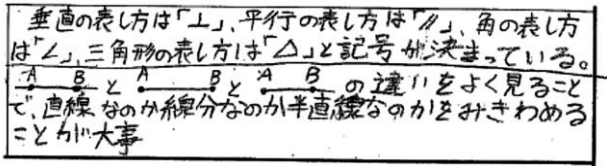 垂直の表し方は「⊥」、平行の表し方は「∥」、角の表し方
は「∠」、三角形の表し方は「△」と記号が決まっている。
A B と A B と A B の違いをよく見ること
で、直線なのか線分なのか半直線なのかをみきわめる
ことが大事